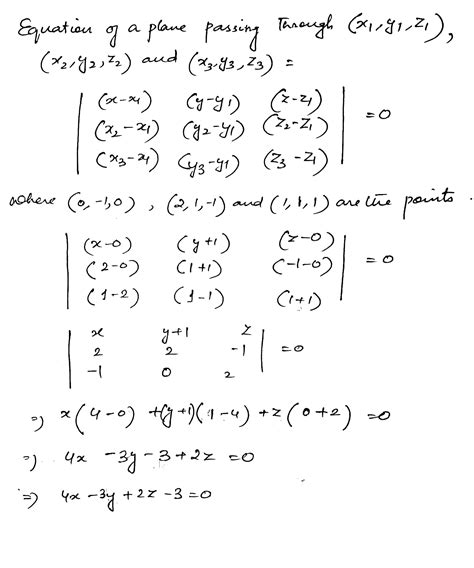 Equation of a plane passing through (x₁, y₁, z₁),
(x₂, y₂, z₂) and (x₃, y₃, z₃) =
| (x-x₁) (y-y₁) (z-z₁) |
| (x₂-x₁) (y₂-y₁) (z₂-z₁) | = 0
| (x₃-x₁) (y₃-y₁) (z₃-z₁) |
where (0, -1, 0), (2, 1, -1) and (1, 1, 1) are the points.
| (x-0) (y+1) (z-0) |
| (2-0) (1+1) (-1-0) | = 0
| (1-2) (1-1) (1+1) |
| x y+1 z |
| 2 2 -1 | = 0
| -1 0 2 |
⇒ x(4-0) +(y+1)(1-4) + z(0+2) = 0
⇒ 4x - 3y - 3 + 2z = 0
⇒ 4x - 3y + 2z - 3 = 0